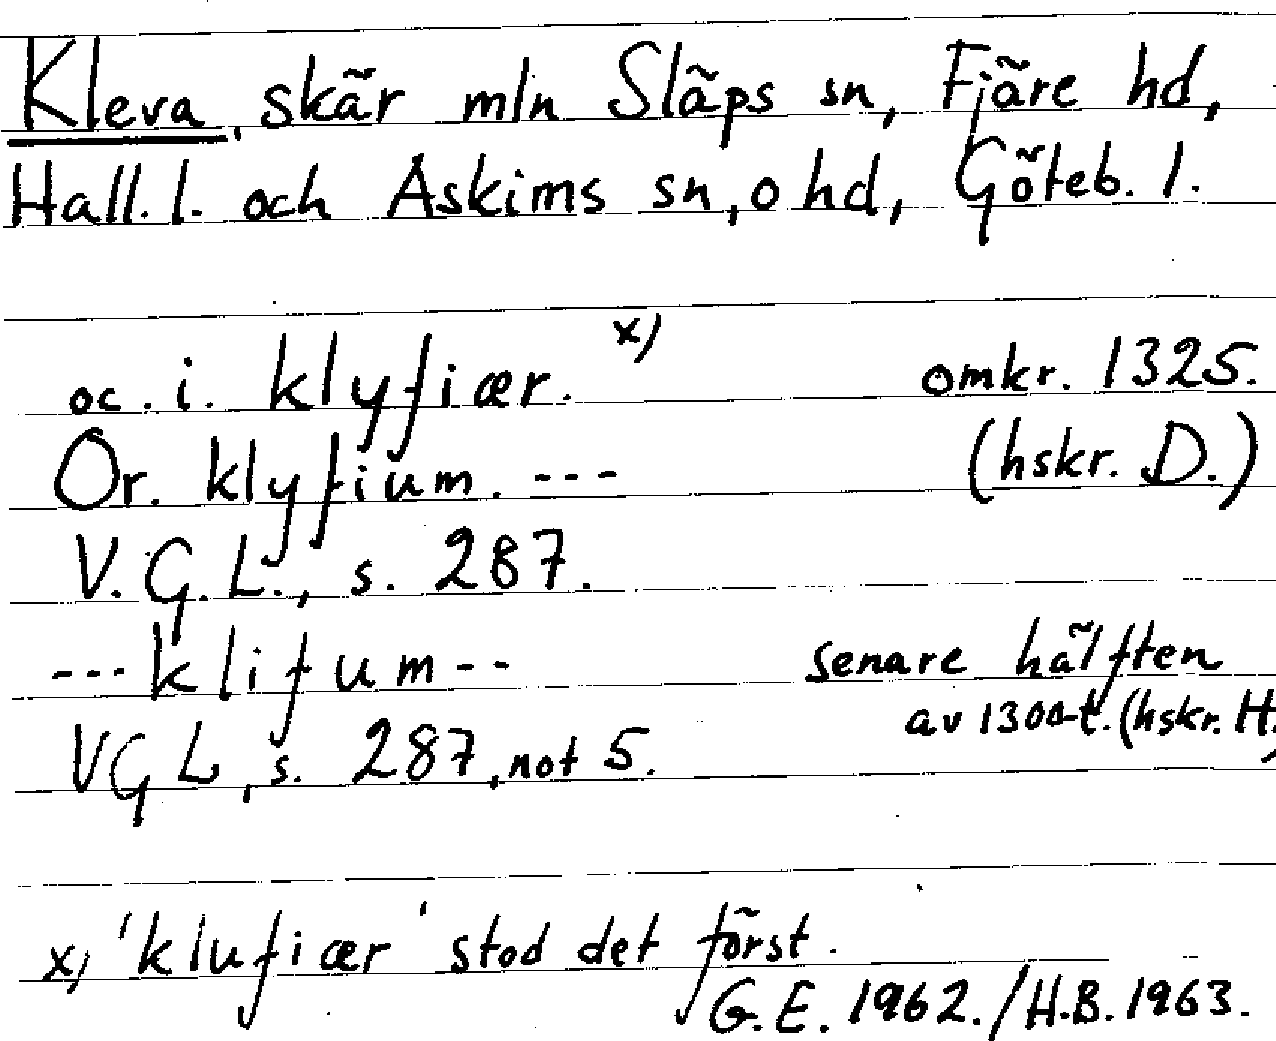 Kleva, skär mln Släps sn, Fjäre hd,
Hall. l. och Askims sn, o hd, Göteb. l.
oc. i. klyfiær. x) omkr. 1325.
Or. klyfium. --- (hskr. D.)
V. G. L., s. 287.
--- klifum -- senare hälften
av 1300-t. (hskr. H.)
VGL, s. 287, not 5.
x) 'klufiær' stod det först.
G.E. 1962. / H.B. 1963.